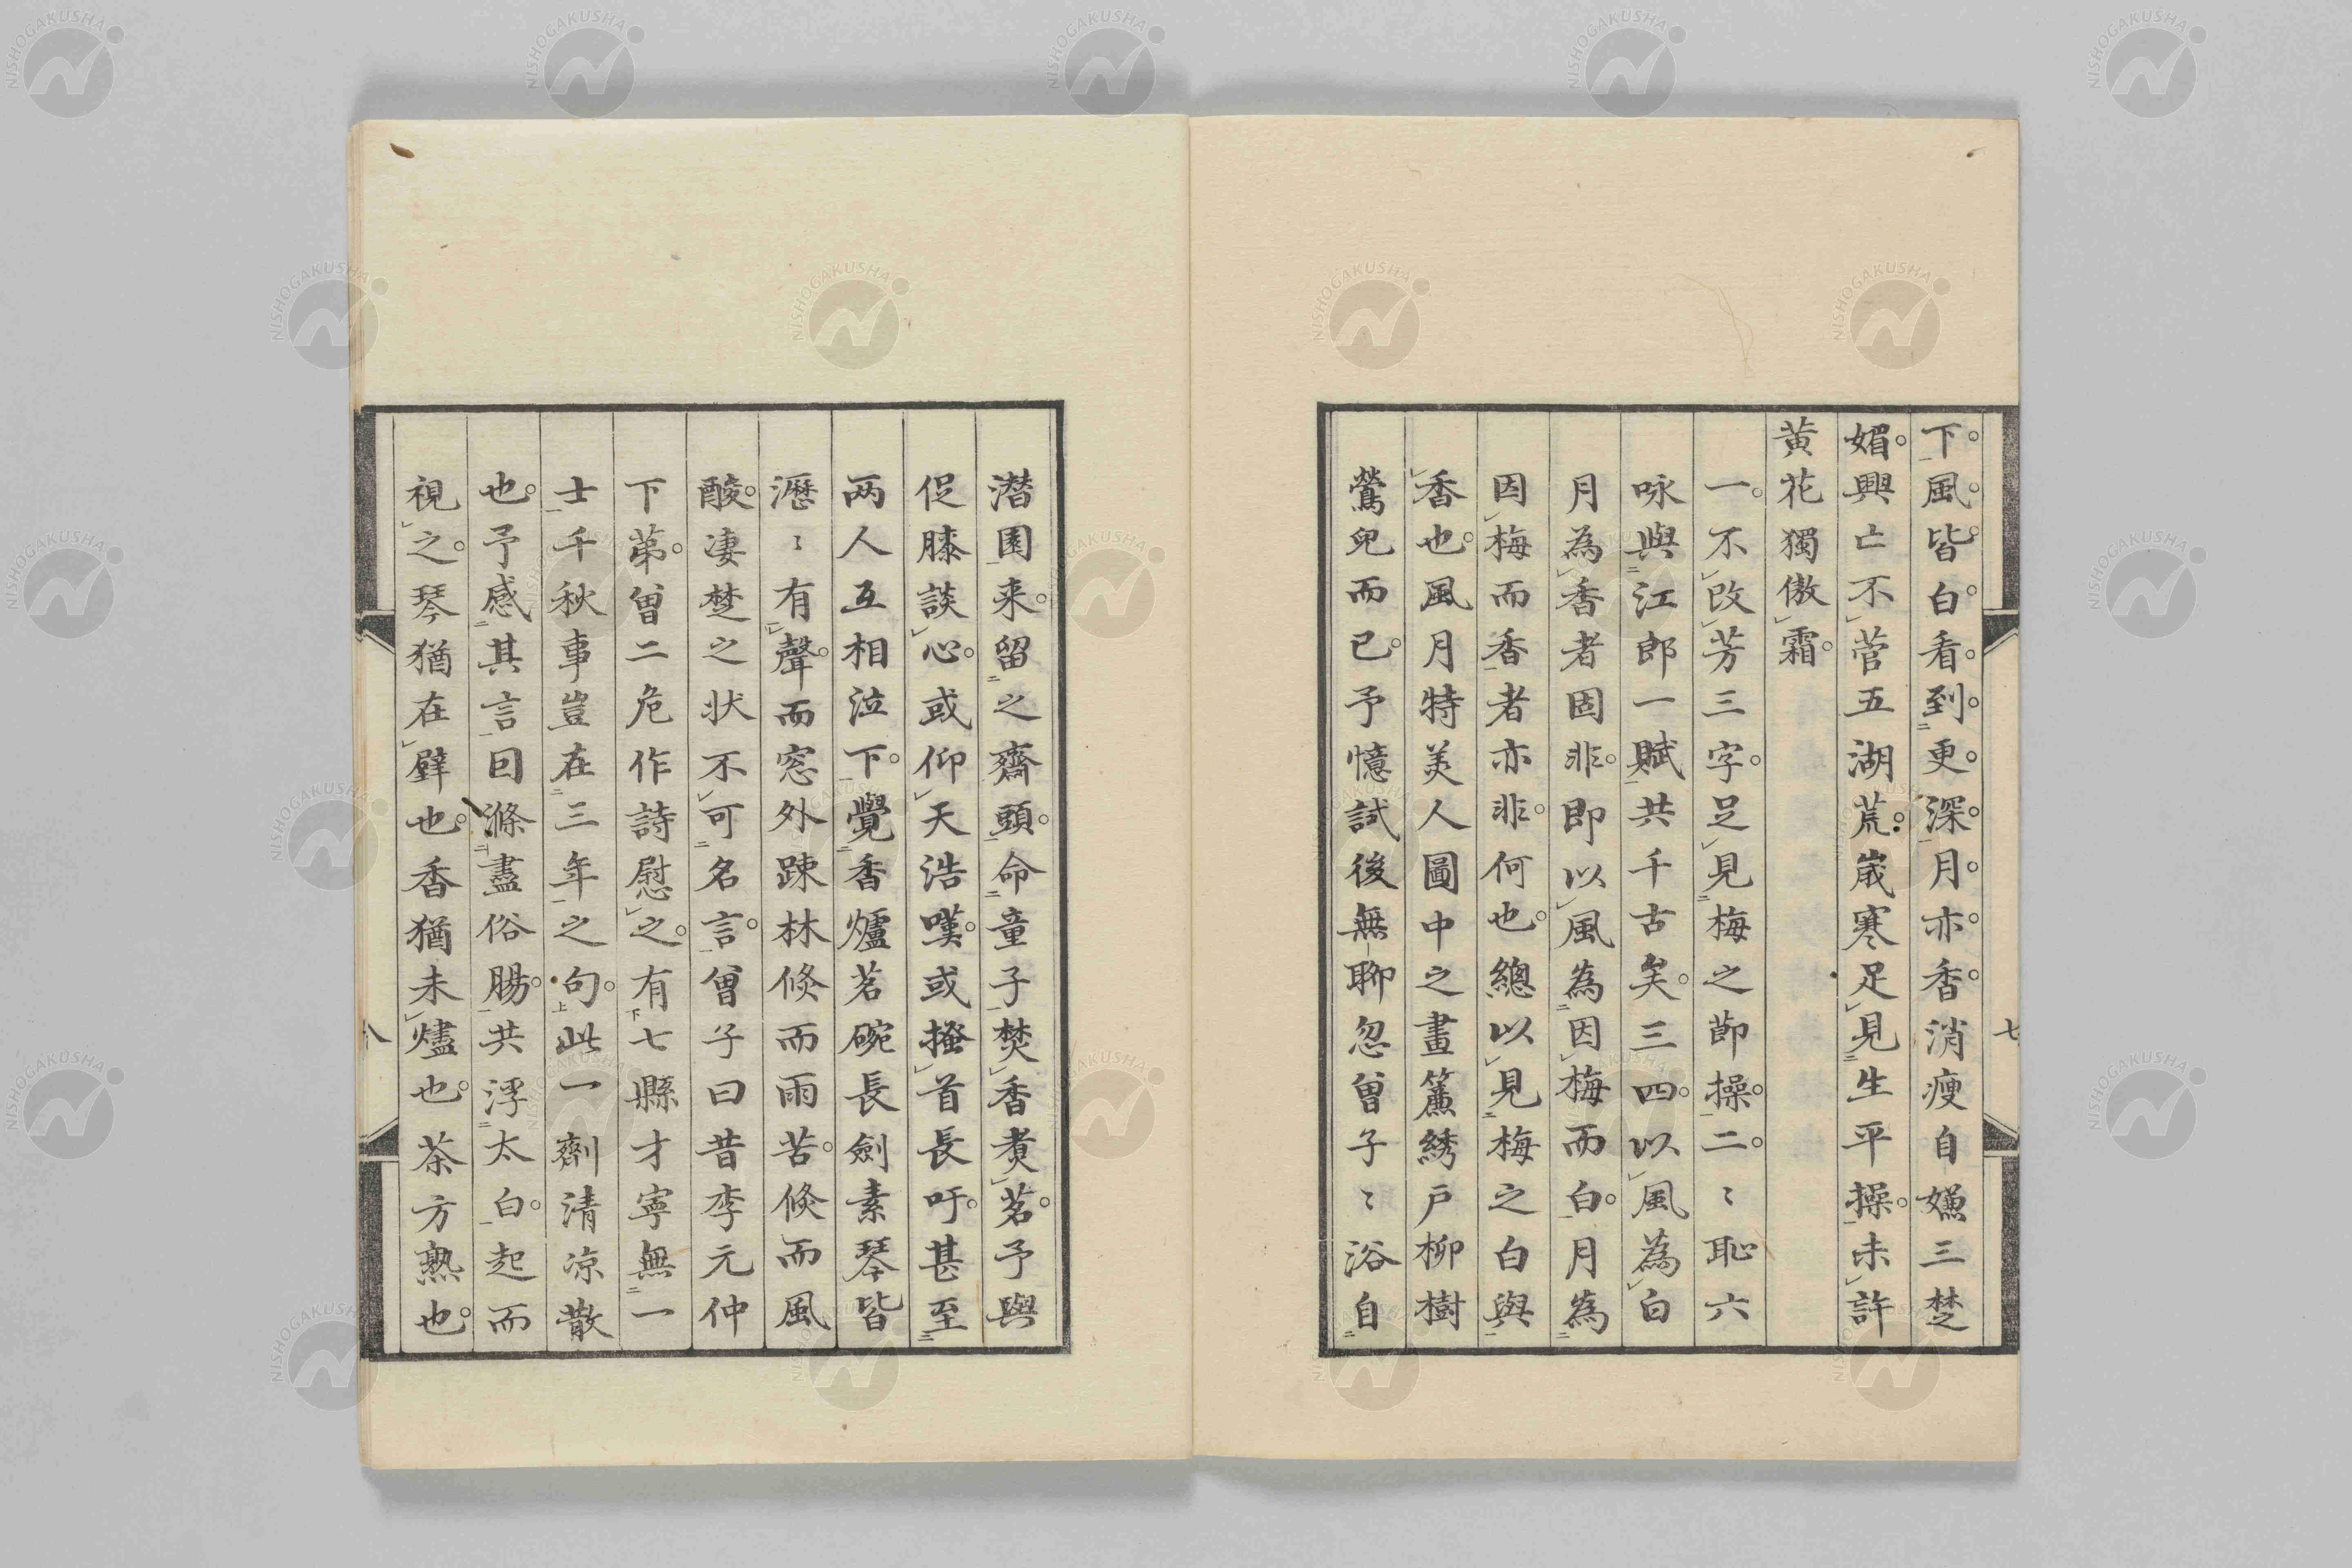 下風皆白看到更深月亦香消瘦自嫌三楚
媚興亡不菅五湖荒歲寒足見生平操未許
黄花獨傲霜
一不改芳三字足見梅之節操二〻恥六
咏與江郎一賦共千古矣三四以風為白
月為香者固非即以風為因梅而白月為
因梅而香者亦非何也總以見梅之白與
香也風月特美人圖中之畫簾綉戶柳樹
鶯兒而已予憶試後無聊忽曾子〻浴自
七
潜園来留之齋頭命童子焚香煑茗予與
促膝談心或仰天浩嘆或搔首長吁甚至
两人互相泣下覺香爐茗碗長劍素琴皆
瀝〻有聲而窓外踈林倏而雨苦倏而風
酸凄楚之状不可名言曾子曰昔李元仲
下第曾二危作詩慰之有七縣才寧無一
士千秋事豈在三年之句此一劑清凉散
也予感其言囙滌盡俗腸共浮太白起而
視之琴猶在壁也香猶未燼也茶方熟也
八